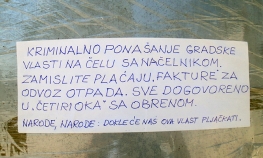 KRIMINALNO PONAŠANJE GRADSKE
VLASTI NA ČELU SA NAČELNIKOM.
ZAMISLITE PLAĆAJU „FAKTURE" ZA
ODVOZ OTPADA. SVE DOGOVORENO
U „ČETIRI OKA" SA OBRENOM.
NARODE, NARODE: DOKLE ĆE NAS OVA VLAST PLJAČKATI.